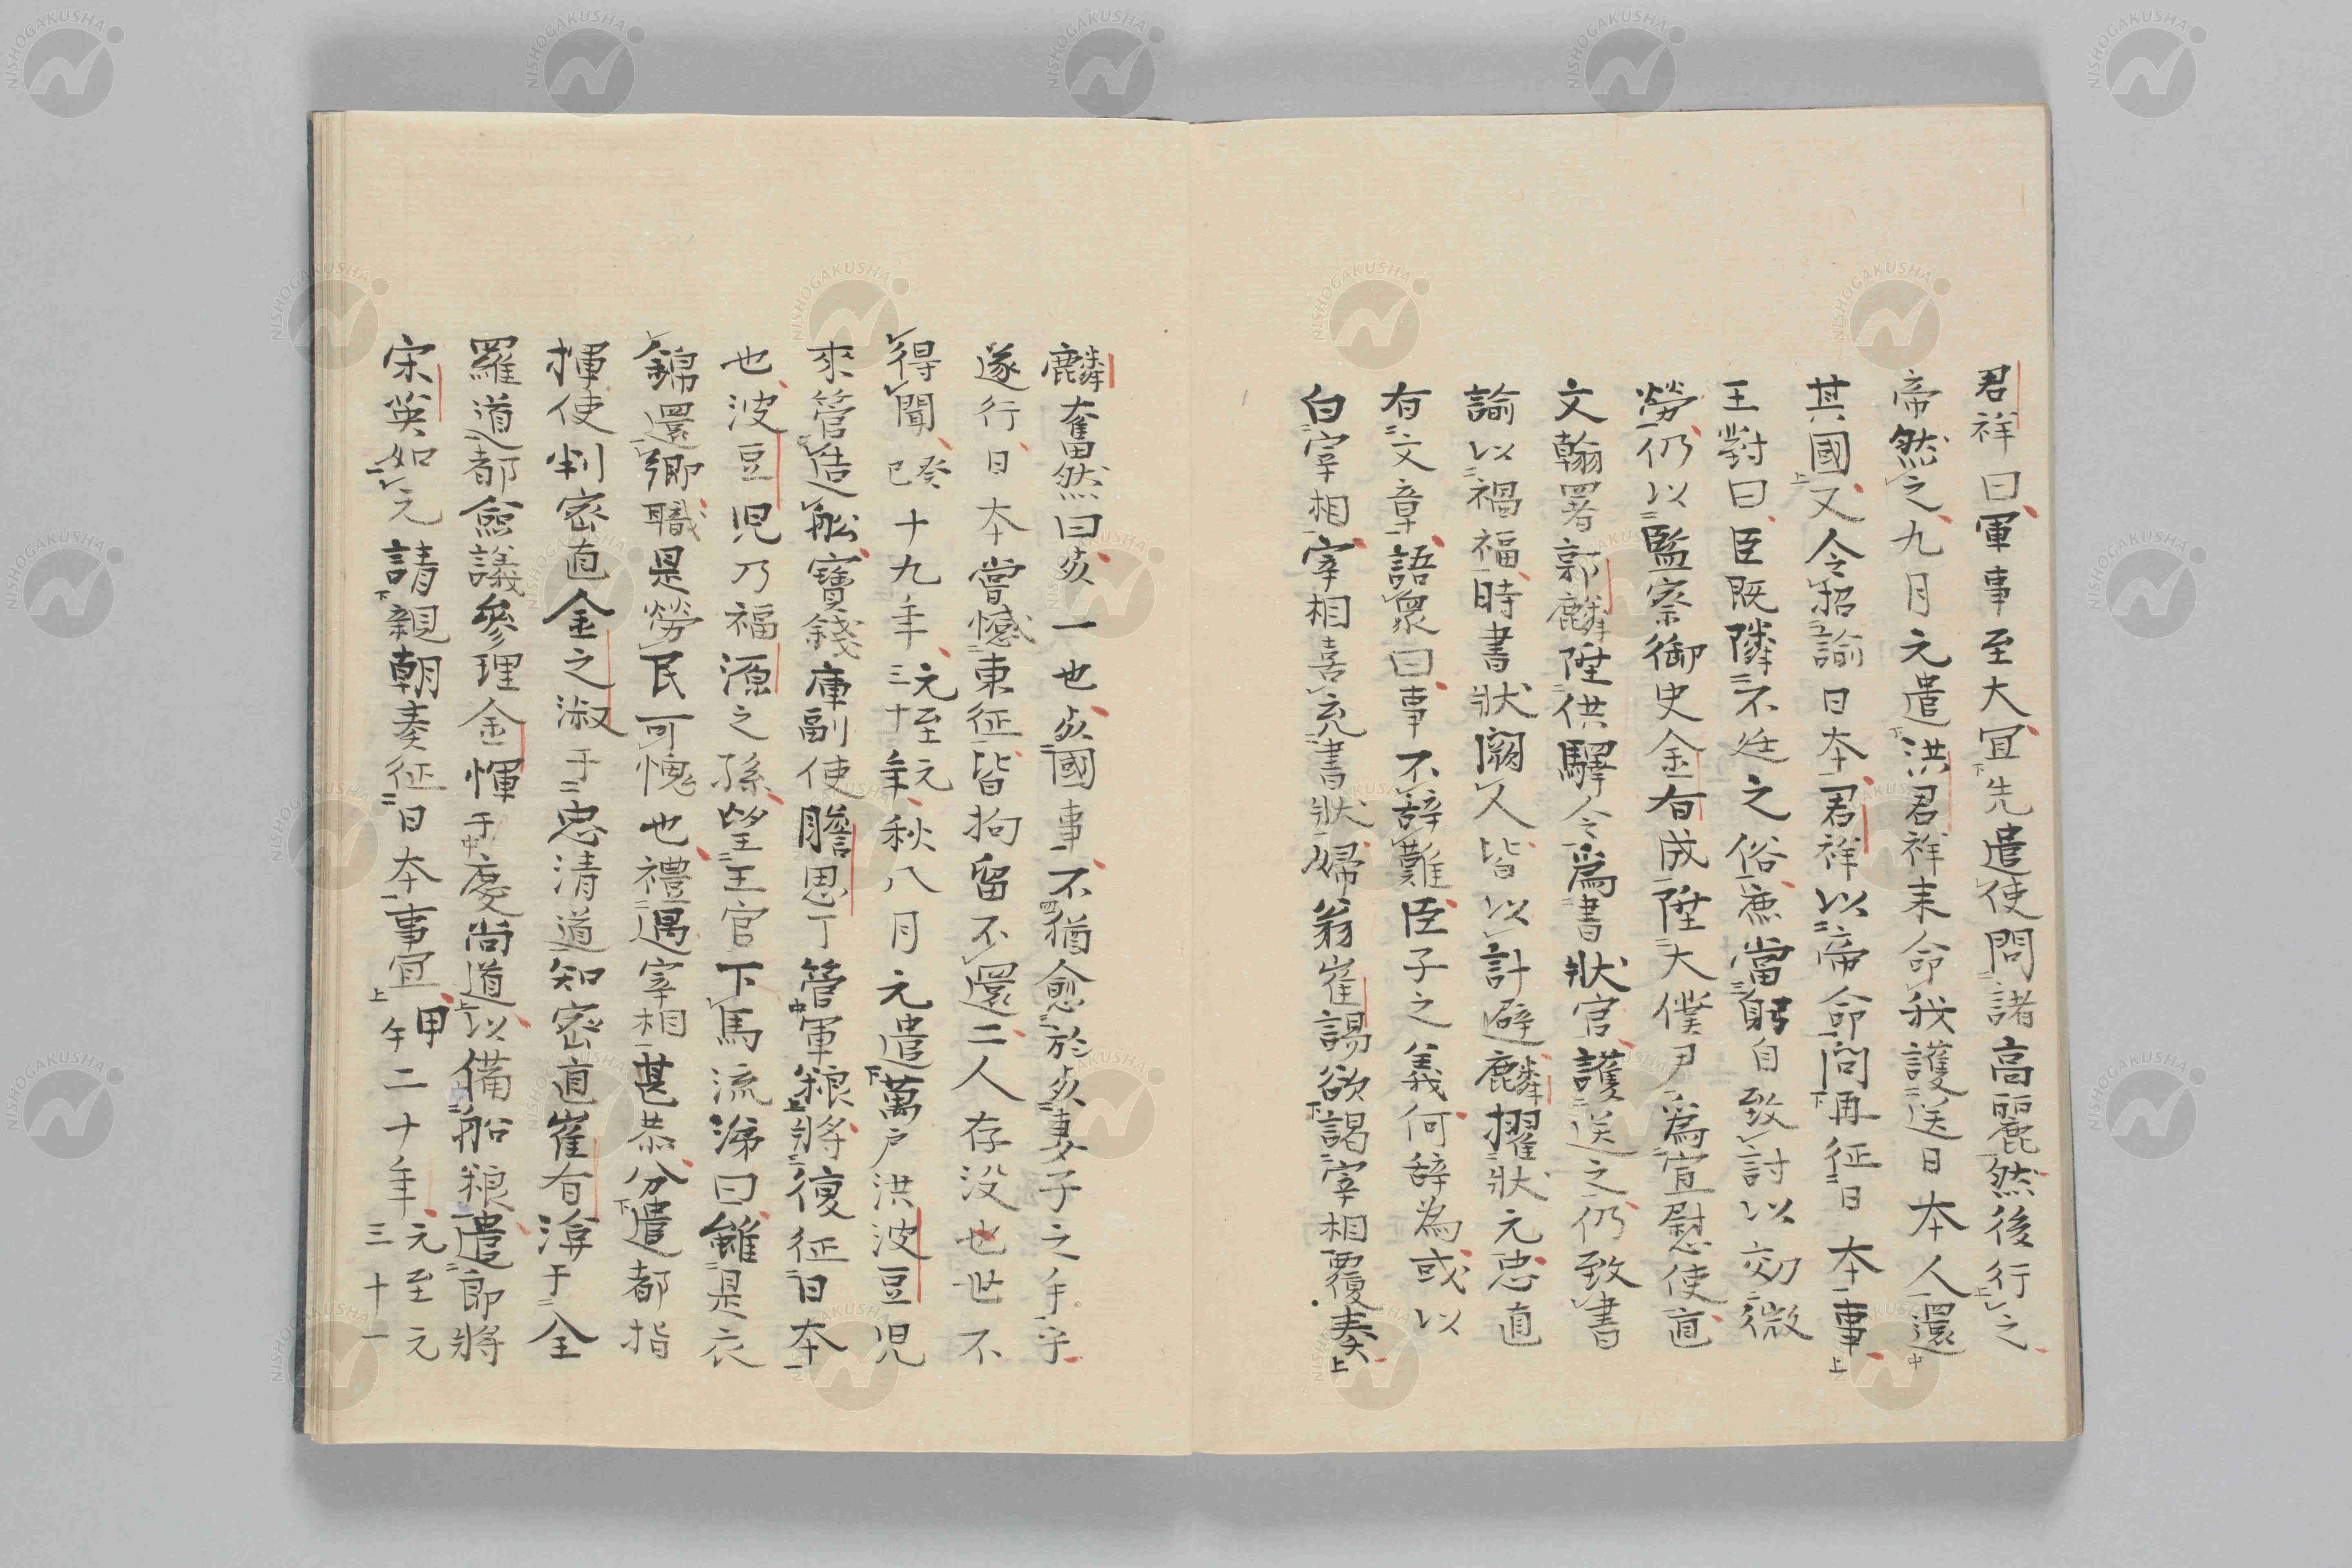 君祥曰軍事至大宜先遣使問諸高麗然後行之
帝然之九月元遣洪君祥来命我護送日本人還
其國又令招諭日本君祥以帝命問再征日本事
王對曰臣既隣不廷之俗庶當躬自致討以効微
勞仍以監察御史金有成陞大僕尹為宣慰使直
文翰署郭麟陞供驛令為書狀官護送之仍致書
諭以禍福時書狀闕人皆以計避麟擢狀元忠直
有文章語衆曰事不辞難臣子之義何辞為或以
白宰相宰相喜充書狀婦翁崔諹欲謁宰相覆奏
麟奮然曰死一也死國事不猶愈於死妻子之手乎
遂行日本嘗憾東征皆拘留不還二人存没也世不
得聞癸巳十九年元至元三十年秋八月元遣萬戶洪波豆児
來管造舩寶錢庫副使瞻思丁管軍粮將復征日本
也波豆児乃福源之孫望王官下馬流涕曰雖是衣
錦還鄉職是勞民可愧也禮遇宰相甚恭分遣都指
揮使判密直金之淑于忠清道知密直崔有渰于全
羅道都僉議參理金惲于慶尚道以備船粮遣郎將
宋英如元請親朝奏征日本事宜甲午二十年元至元三十一
NISHOGAKUSHA